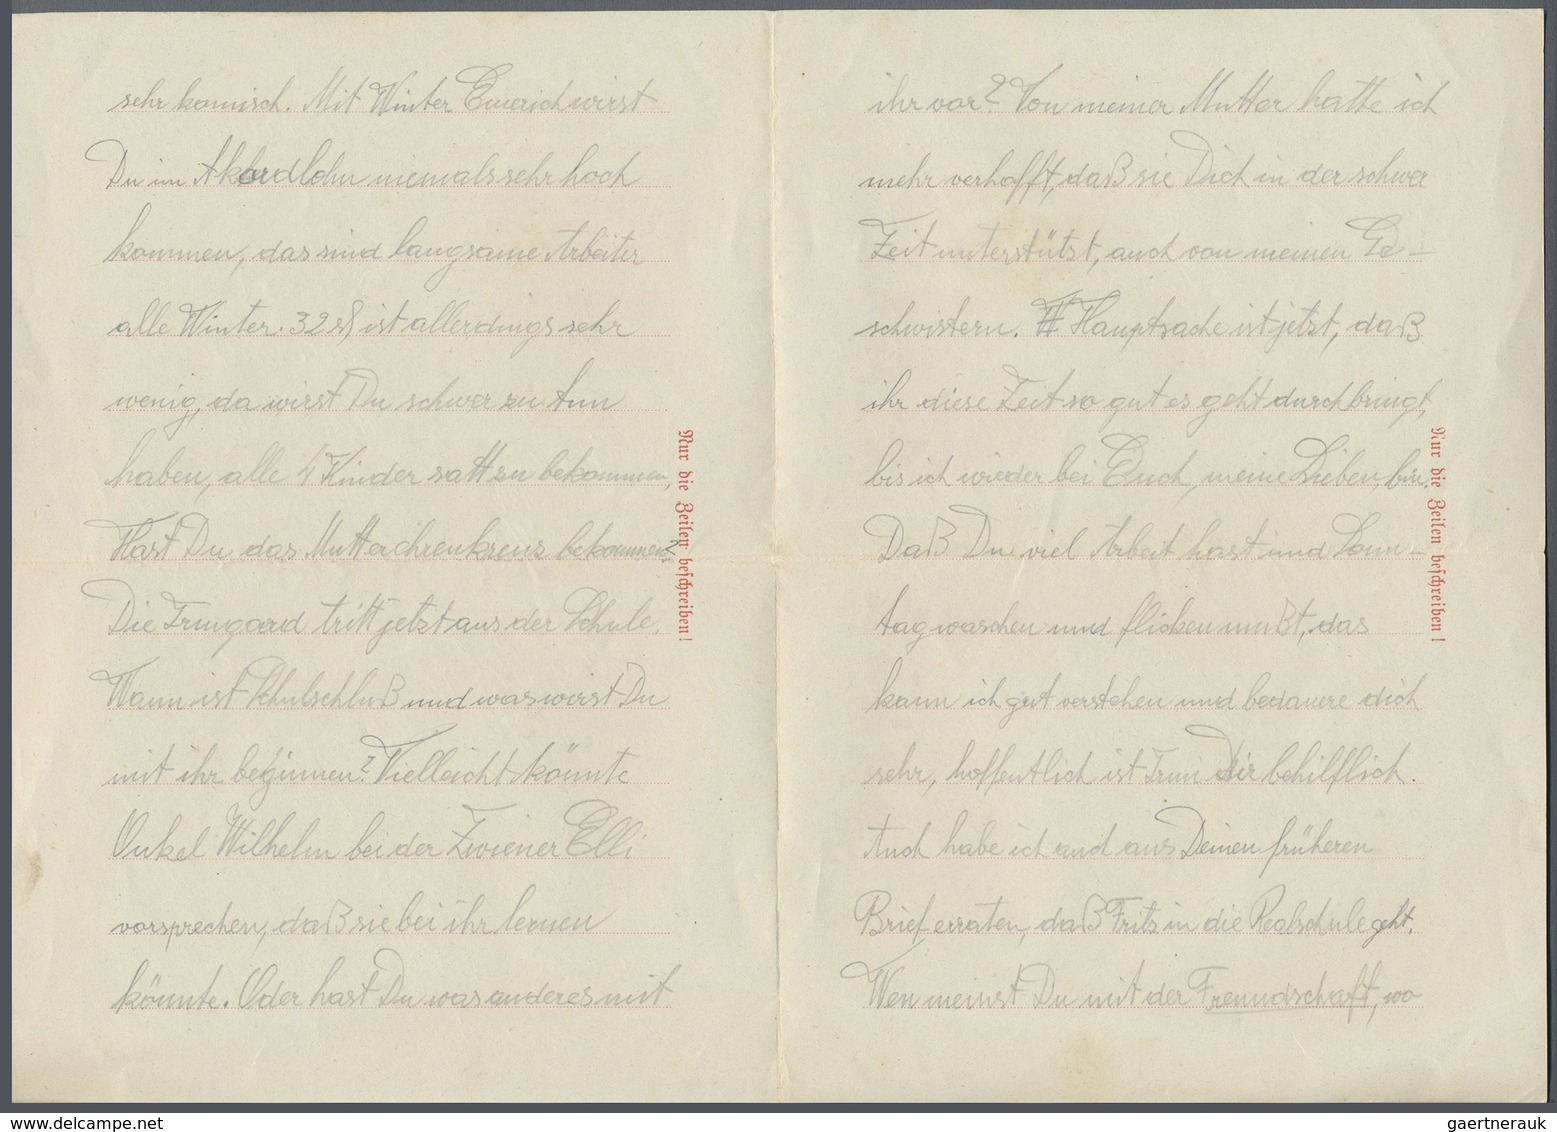 sehr komisch. Mit Winter Emerich wirst
Du im Akkordlohn niemals sehr hoch
kommen, das sind langsame Arbeiter
alle Winter. 32 ist allerdings sehr
wenig, da wirst Du schwer zu tun
haben, alle 4 Kinder satt zu bekommen,
Hast Du das Mutterehrenkreuz bekommen?
Die Irmgard tritt jetzt aus der Schule.
Wann ist Schulschluß und was wirst Du
mit ihr beginnen? Vielleicht könnte
Onkel Wilhelm bei der Zwiener Elli
vorsprechen, daß sie bei ihr lernen
könnte. Oder hast Du was anderes mit
Nur die Zeilen beschreiben!
ihr vor? Von meiner Mutter hatte ich
mehr verhofft, daß sie Dich in der schwer
Zeit unterstützt, auch von meinen Ge-
schwistern. Hauptsache ist jetzt, daß
ihr diese Zeit so gut es geht durchbringt,
bis ich wieder bei Euch, meine Lieben bin.
Daß Du viel Arbeit hast und Sonn-
tag waschen und flicken mußt, das
kann ich gut verstehen und bedauere dich
sehr, hoffentlich ist Irmi Dir behilflich.
Auch habe ich auch aus Deinen früheren
Brief erraten, daß Fritz in die Realschule geht.
Wen meinst Du mit der Freundschaft, wo
Nur die Zeilen beschreiben!
gaertnerauk